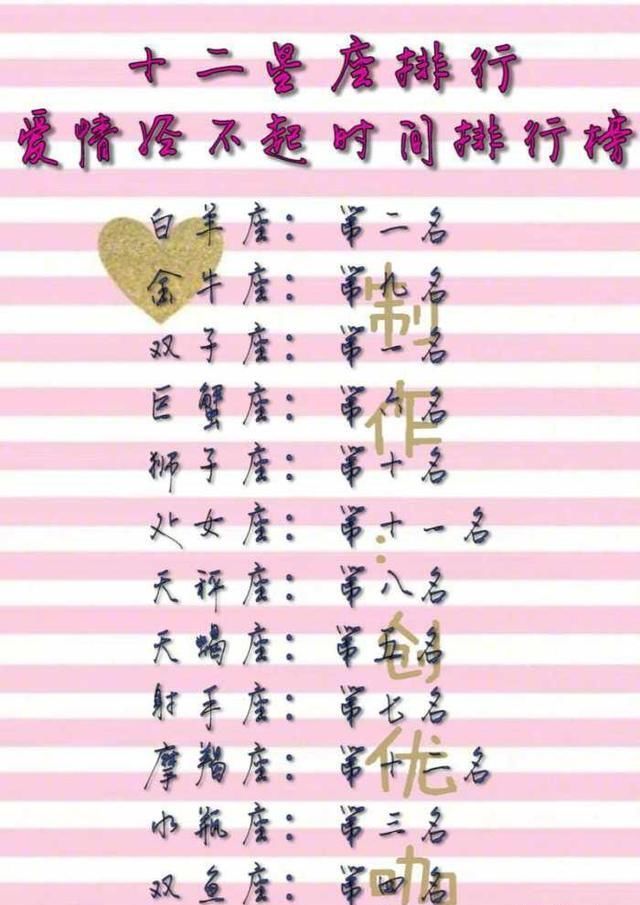 十二星座排行
爱情冷不起时间排行榜
白羊座：第二名
金牛座：第九名
双子座：第一名
巨蟹座：第六名
狮子座：第十名
处女座：第十一名
天秤座：第八名
天蝎座：第五名
射手座：第七名
摩羯座：第十二名
水瓶座：第三名
双鱼座：第四名
制作：创优咖